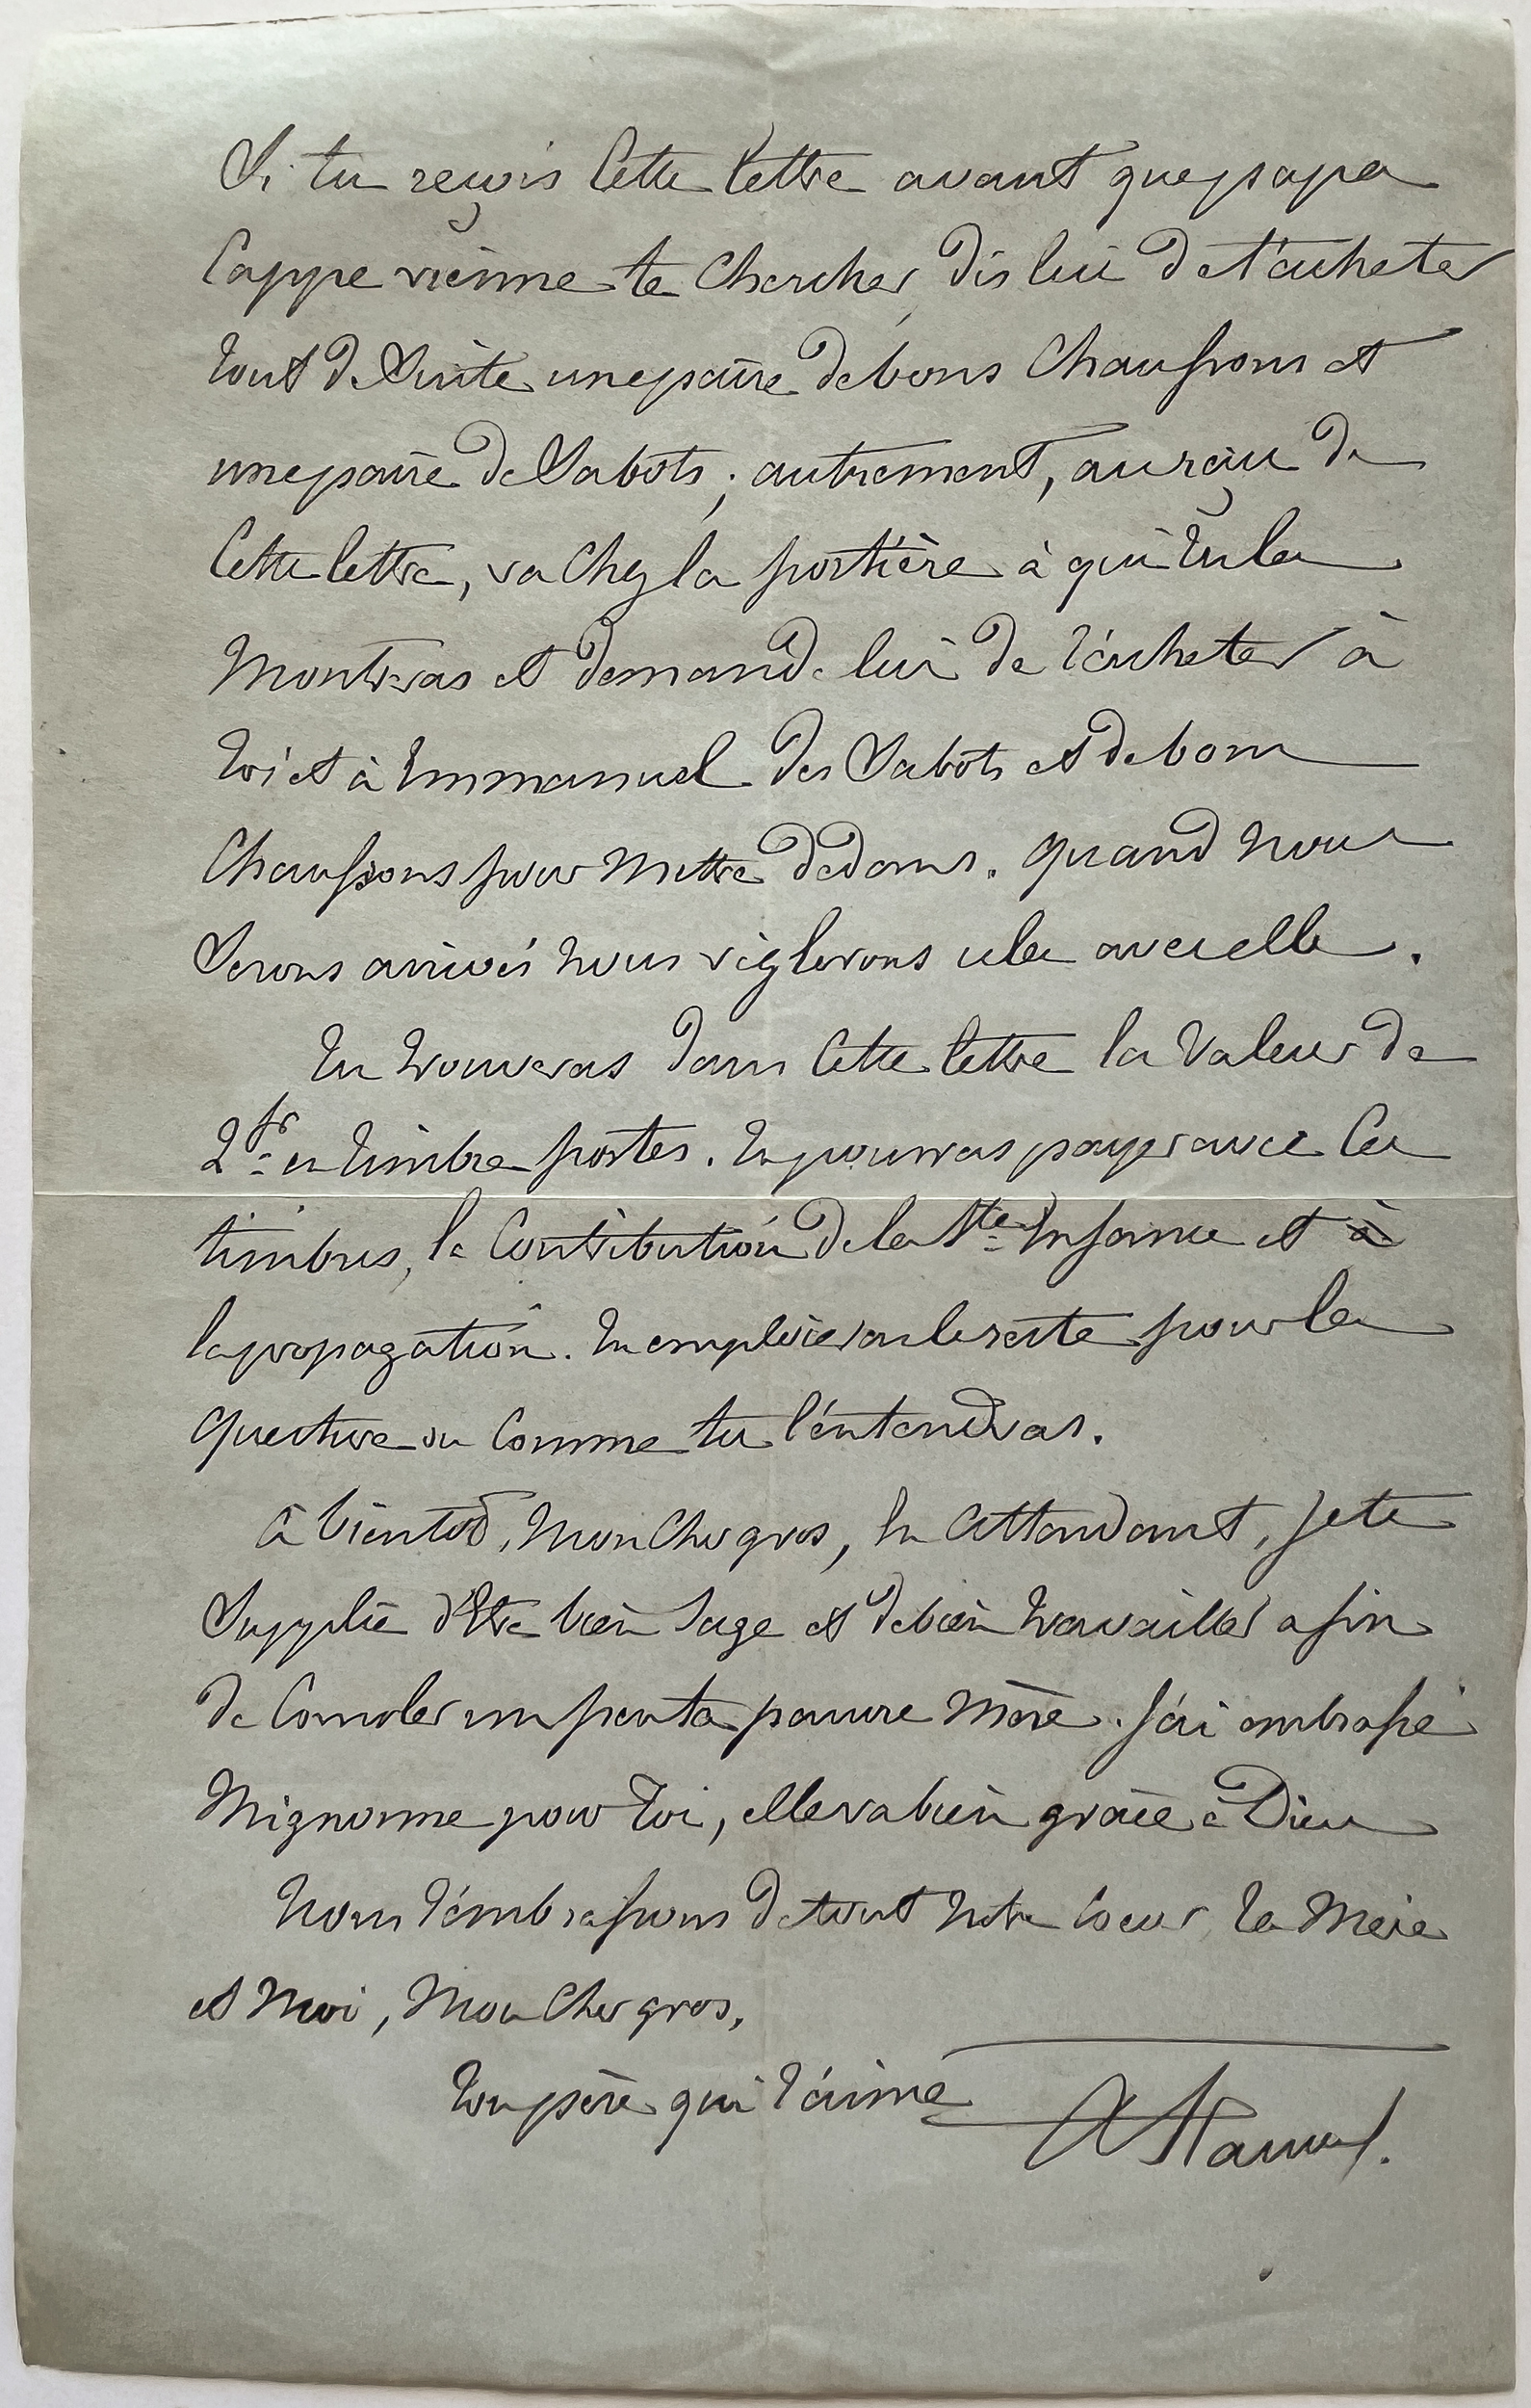 Si tu reçois cette lettre avant que papa
Cappe vienne te chercher, dis lui de t'acheter
tout de suite une paire de bons chaussons et
une paire de sabots ; autrement, au reçu de
cette lettre, va chez la portière à qui tu la
montreras et demande lui de t'acheter à
toi et à Emmanuel des sabots et de bons
chaussons pour mettre dedans. Quand nous
serons arrivés nous règlerons cela avec elle.
Tu trouveras dans cette lettre la valeur de
2fr en timbre postes. Tu pourras payer avec ces
timbres, la contribution de la Ste Enfance et à
la propagation. Tu emploieras le reste pour la
questure ou comme tu l'entendras.
à bientôt, mon cher gros, en attendant, je te
supplie d'être bien sage et de bien travailler afin
de consoler un peu ta pauvre mère. J'ai embrassé
Mignonne pour toi, elle va bien grâce à Dieu
Nous t'embrassons de tout notre coeur, ta mère
et moi, mon cher gros,
ton père qui t'aime